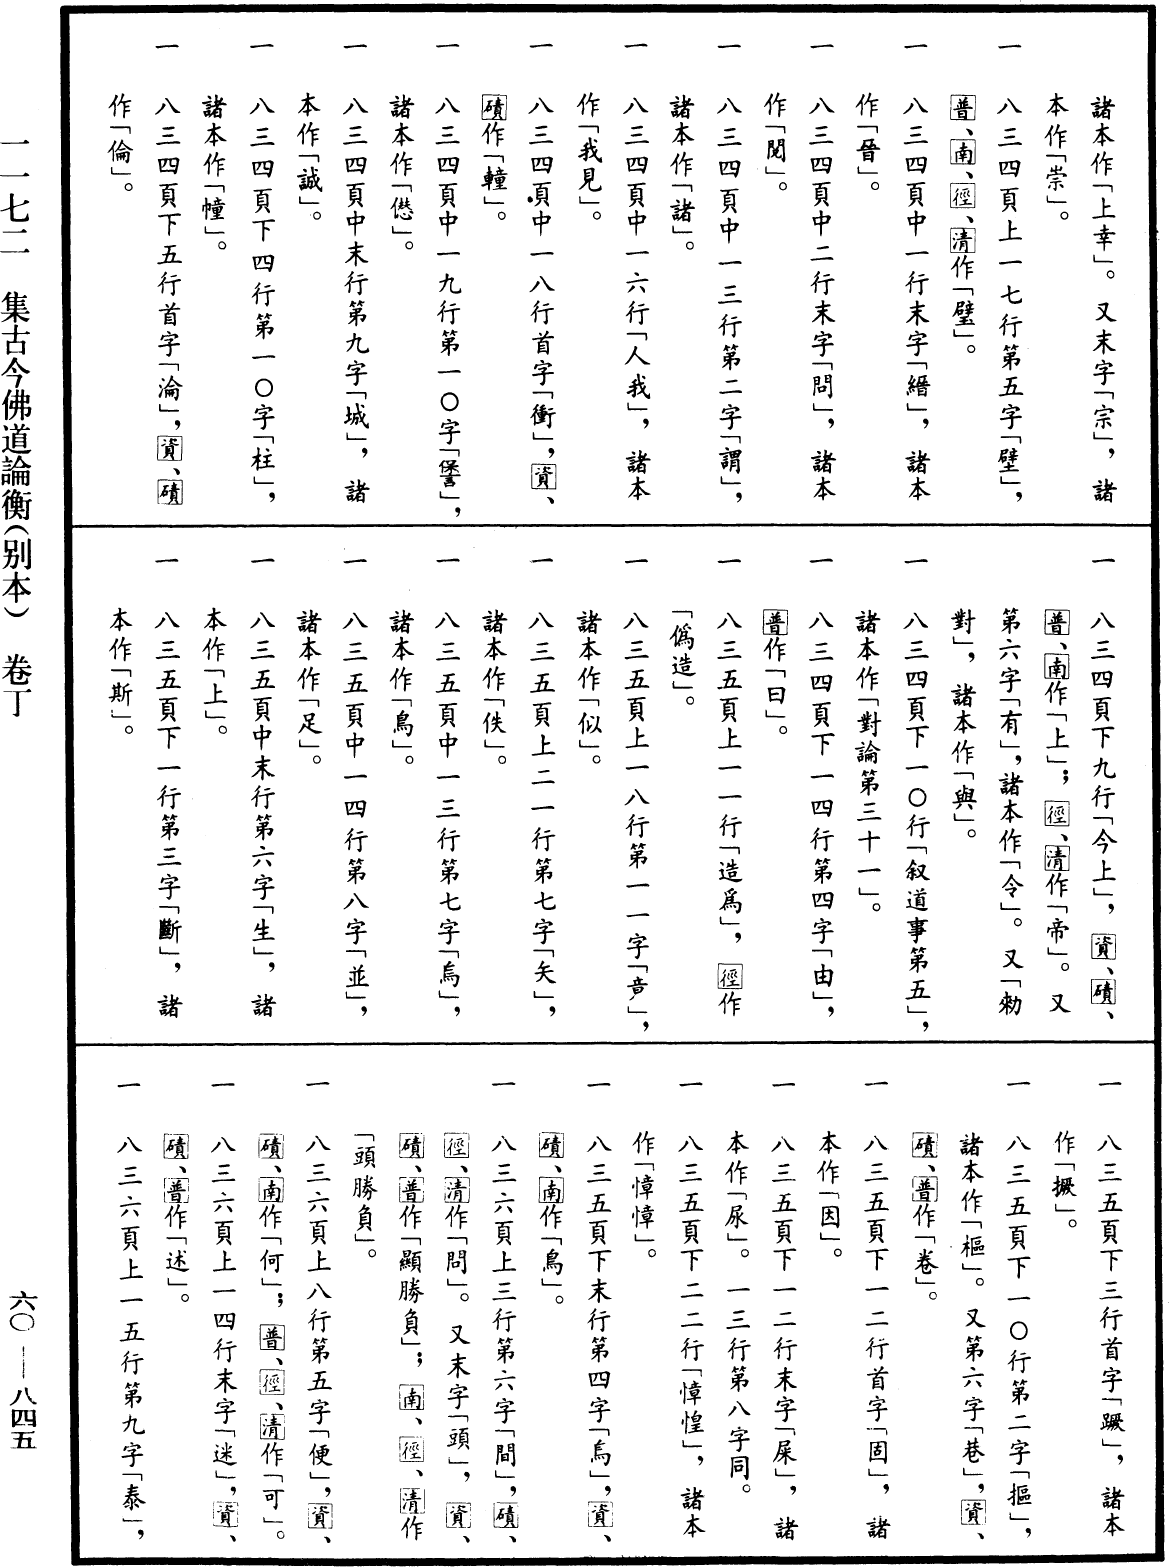 諸本作「上幸」。又末字「宗」，諸
本作「崇」。
一　八三四頁上一七行第五字「壁」，
普、南、徑、清作「璧」。
一　八三四頁中一行末字「縉」，諸本
作「晉」。
一　八三四頁中二行末字「問」，諸本
作「閱」。
一　八三四頁中一三行第二字「謂」，
諸本作「諸」。
一　八三四頁中一六行「人我」，諸本
作「我見」。
一　八三四頁中一八行首字「衝」，資、
磧作「𨍏」。
一　八三四頁中一九行第一〇字「㦣」，
諸本作「𠎝」。
一　八三四頁中末行第九字「城」，諸
本作「誠」。
一　八三四頁下四行第一〇字「柱」，
諸本作「幢」。
一　八三四頁下五行首字「淪」，資、磧
作「倫」。
一　八三四頁下九行「今上」，資、磧、
普、南作「上」；徑、清作「帝」。又
第六字「有」，諸本作「令」。又「勑
對」，諸本作「與」。
一　八三四頁下一〇行「叙道事第五」，
諸本作「對論第三十一」。
一　八三四頁下一四行第四字「由」，
普作「曰」。
一　八三五頁上一一行「造爲」，徑作
「僞造」。
一　八三五頁上一八行第一一字「音」，
諸本作「似」。
一　八三五頁上二一行第七字「矢」，
諸本作「佚」。
一　八三五頁中一三行第七字「烏」，
諸本作「鳥」。
一　八三五頁中一四行第八字「並」，
諸本作「足」。
一　八三五頁中末行第六字「生」，諸
本作「上」。
一　八三五頁下一行第三字「斷」，諸
本作「斯」。
一　八三五頁下三行首字「蹶」，諸本
作「撅」。
一　八三五頁下一〇行第二字「摳」，
諸本作「樞」。又第六字「巷」，資、
磧、普作「卷」。
一　八三五頁下一二行首字「固」，諸
本作「因」。
一　八三五頁下一二行末字「屎」，諸
本作「尿」。一三行第八字同。
一　八三五頁下二二行「慞惶」，諸本
作「慞慞」。
一　八三五頁下末行第四字「烏」，資、
磧、南作「鳥」。
一　八三六頁上三行第六字「間」，磧、
徑、清作「問」。又末字「頭」，資、
磧、普作「顯勝負」；南、徑、清作
「頭勝負」。
一　八三六頁上八行第五字「便」，資、
磧、南作「何」；普、徑、清作「可」。
一　八三六頁上一四行末字「迷」，資、
磧、普作「述」。
一　八三六頁上一五行第九字「泰」，
一一七二　集古今佛道論衡（别本）　卷丁
六〇——八四五